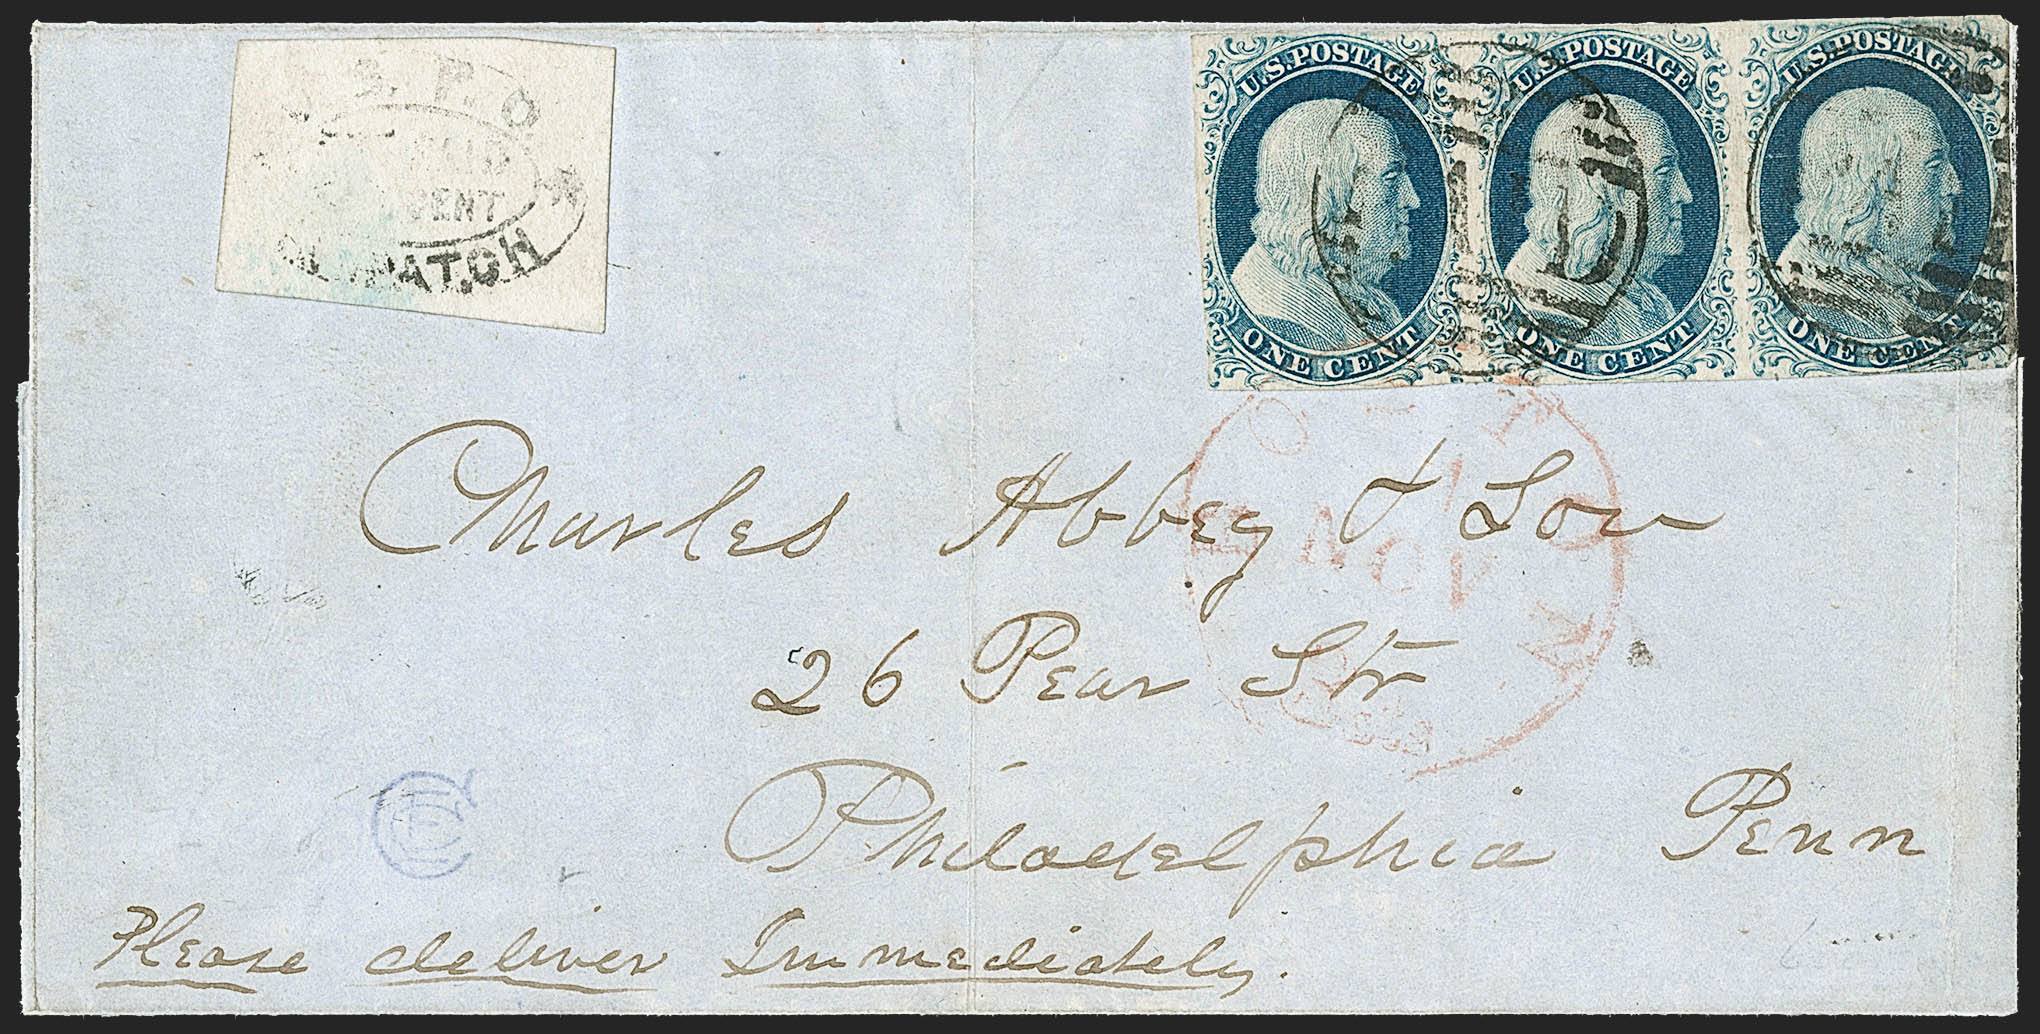 S. P. O
CENT
U.S. POSTAGE U.S. POSTAGE U.S. POSTAGE
ONE CENT ONE CENT ONE CENT
Charles Abbey & Son
NOV
26 Pear Str
Philadelphia Penn
Please deliver Immediately.